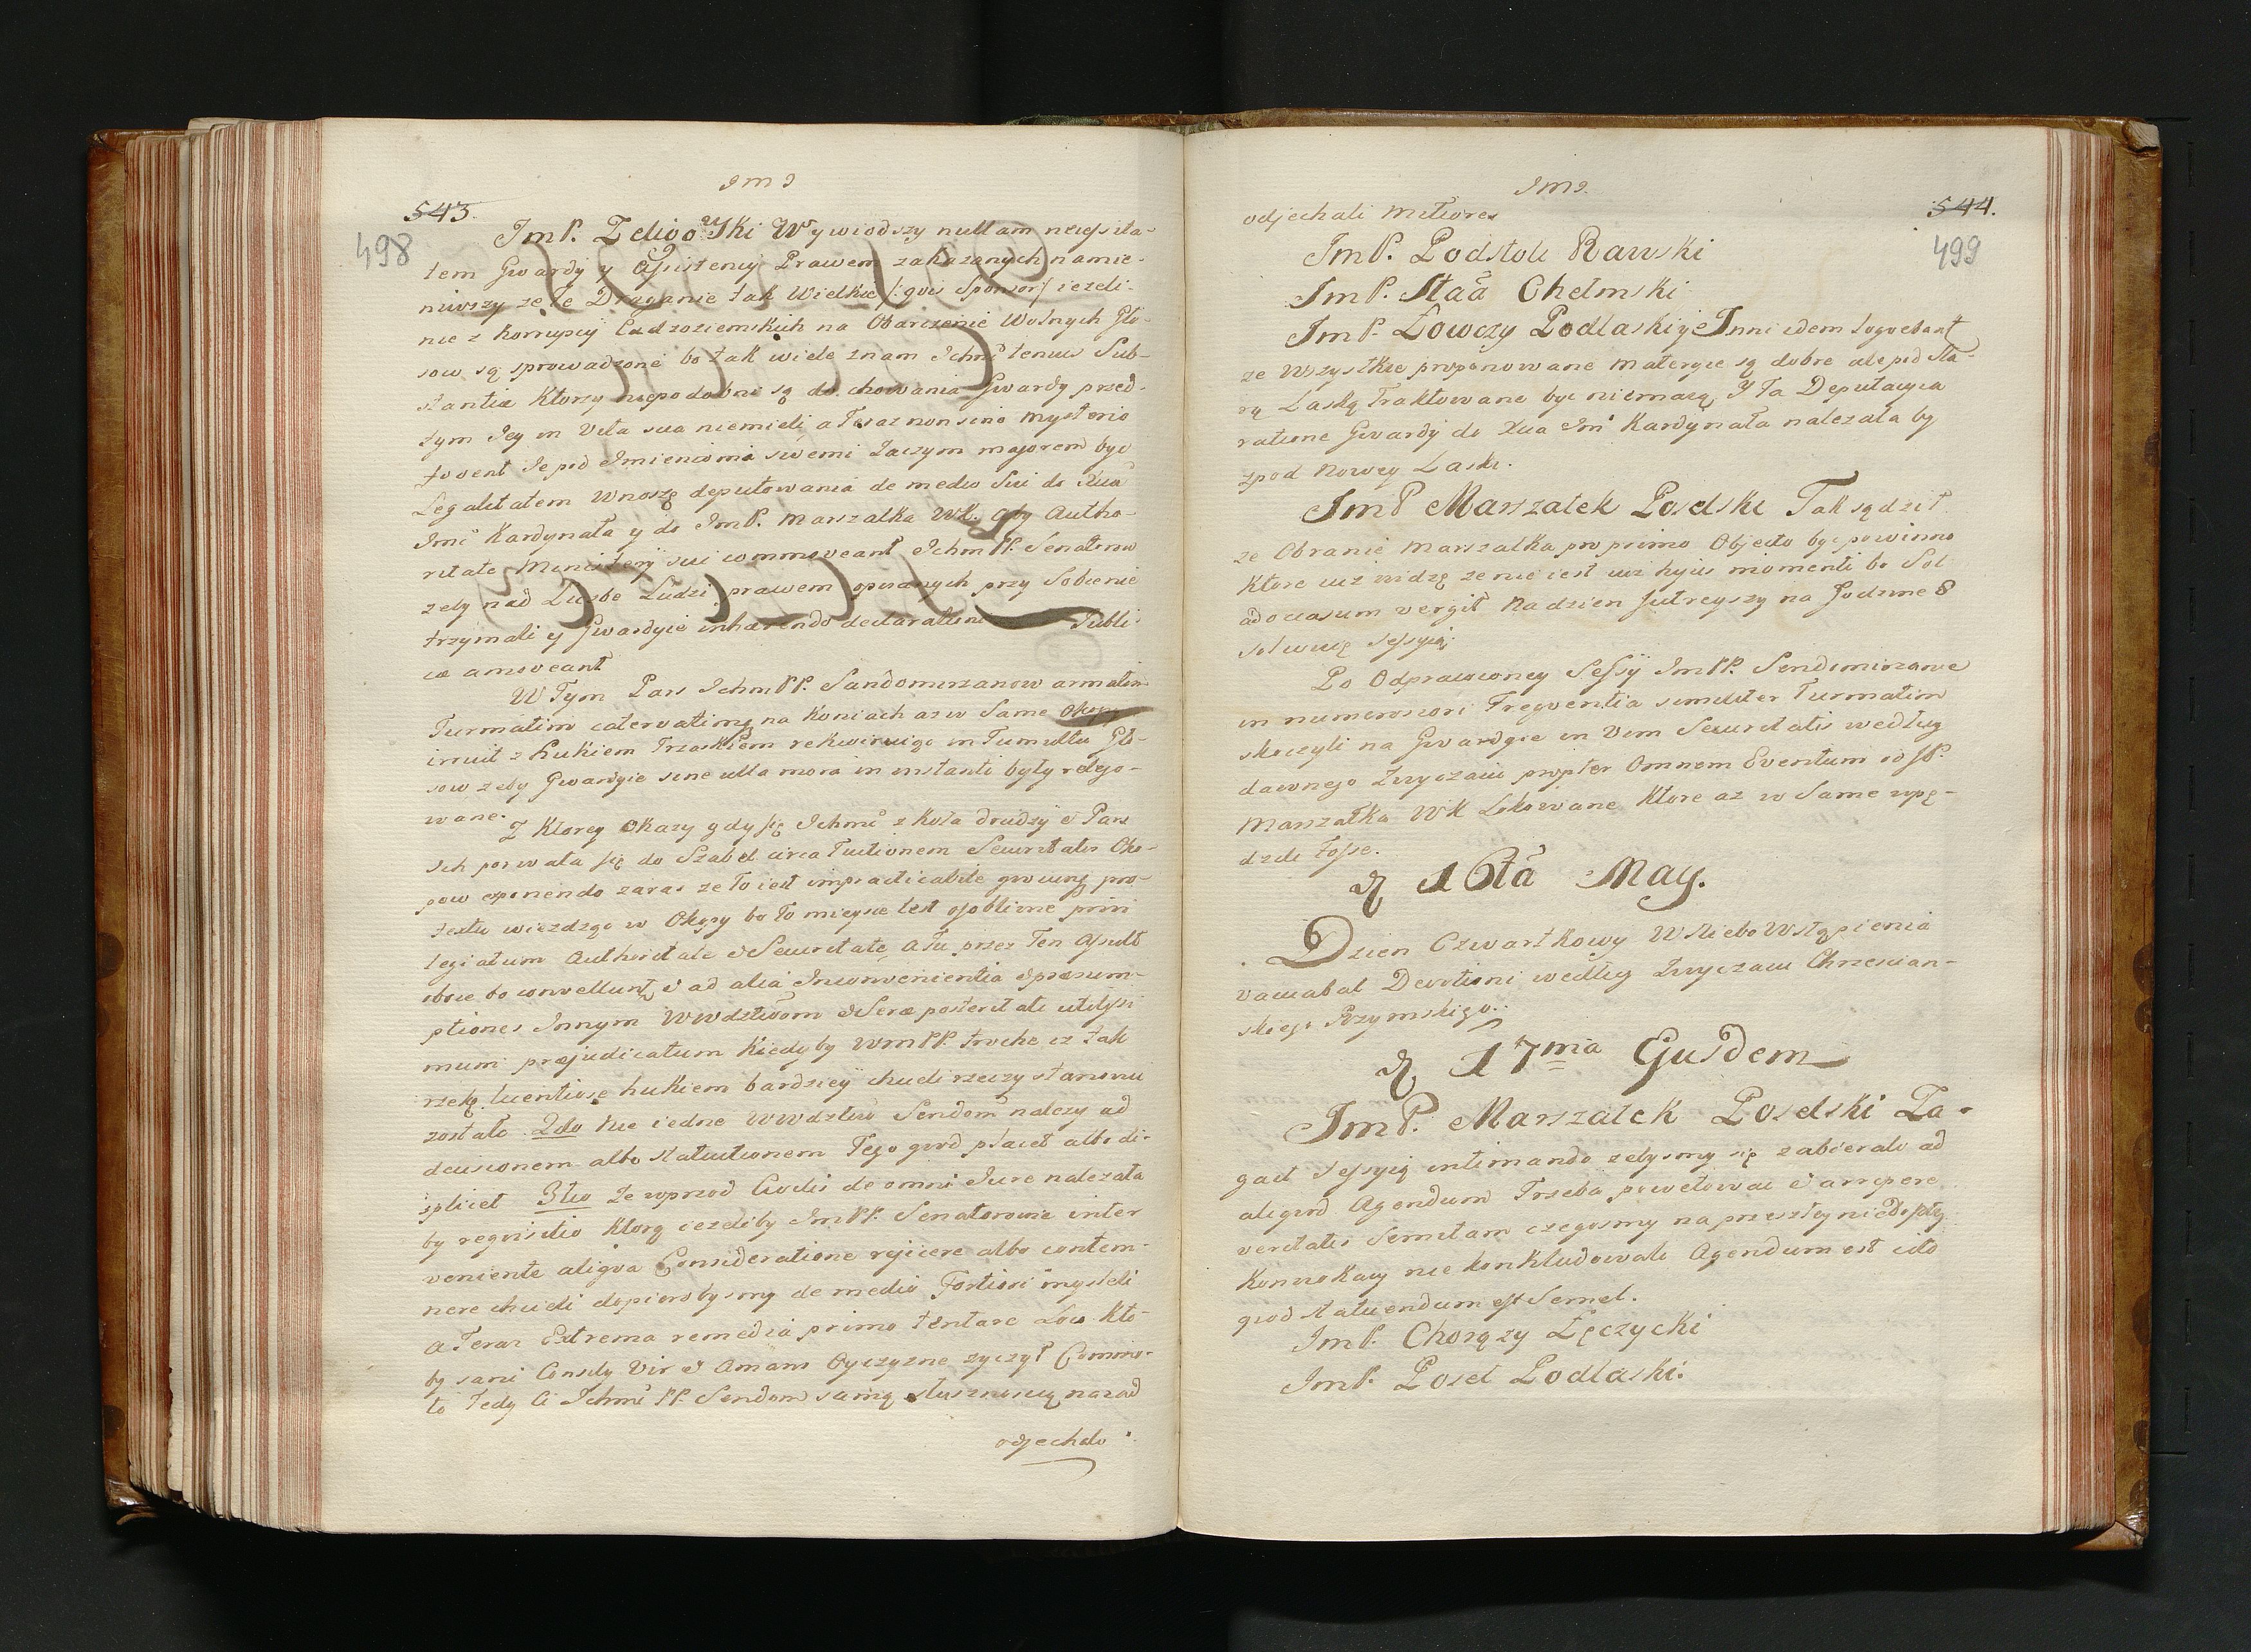 543.
498
ImP. Zeligowski Wywiodszy nullam necessita-
tem Gwardy y Assistency Prawem zakazanych namie-
niwszy ze te Draganie tak Wielkie /: qvis Sponsor :/ iezeli
nie z Korrupcij Cudzoziemskich na Obarczenie Wolnych Glo-
sow są sprowadzone bo tak wiele znam Ichmc tenuis Sub-
stantia Ktorzy niepodobni są do chowania Gwardy przed-
tym Iey in Vita sua niemieli, a Teraz non sine Mysterio
fovent Je pod Imieniami swemi Zaczym majorem byc
Legalitatem Wnoszę deputowania de medio Sui do Xcia
Imc Kardynała y do ImP. Marszalka WK. aby Autho-
ritate Ministerij sui commoveant Ichm PP. Senatorow
zeby nad Liczbe Ludzi prawem opisanych przy Sobie nie
trzymali y Gwardyie inhærendo declarationi Publi-
cæ amoveant
W Tym Pars Ichm PP. Sandomirzanow armatim
Turmatim catervatimq na Koniach az w Same Okopy
irruit z hukiem Trzaskiem rekwiruiąc in Tumultu Glo-
sow zeby Gwardyie sine ulla mora in instanti były relego-
wane.
Z Ktorey Okazy gdy się Ichmc z Koła drudzy & Pars
Ich porwała się do Szabel circa Tuitionem Securitatis Oko-
pow exponendo zaraz ze to iest impracticabile qvocunq præ-
textu wiezdzac w Okopy bo To mieysce iest osobliwie privi
legiatum Authoritate & Securitate, a Tu przez Ten Assult
oboie bo convellunt & ad alia Inconvenientia & præsum-
ptiones Innym WWdztwom & Seræ posteritati utilissi
mum præjudicatum Kiedyby WmPP. troche iz tak
rzekę licentiose hukiem bardziey chcieli rzeczy stanoni
zostało 2do Nie iedne WWdztwo Sendom nalezy ad
decisionem albo statuitionem Tego qvod placet albo di-
splicet 3tio Ze wprzod Civilis de omni Iure nalezała
by reqvisitio Ktorą iezeliby ImPP. Senatorowie inter
veniente aliqva Consideratione rejicere albo contem-
nere chcieli dopierobysmy de medio Fortiori mysleli
a Teraz Extrema remedia primo tentare Loco kto-
by sani Consily Vir & Amans Oyczyzne zyczył Commo-
to Tedy Ci Ichmc PP. Sendom samą słusznoscią nazad
odjechali
544.
499
odjechali mitiores
ImP. Podstoli Rawski
ImP. Stta Chełmski
ImP. Łowczy Podlaski y Inni idem loqvebant
ze Wszystkie proponowane materyie są dobre ale pod sta-
rą Laską Traktowane byc niemaią Y Ta Deputacyia
ratione Gwardij do Xcia Imc Kardynała nalezała by
zpod Nowey Laski.
ImP Marszałek Poselski Tak sądził
ze Obranie Marszalka pro primo Objecto byc powinno
Ktore iuz widzę ze nie iest iuz hujus momenti bo Sol
ad occasum vergit Na dzien Jutreyszy na Godzine 8
solwuię Sessyią.
Po Odprawioney Sessij ImPP. Sendomirzanie
in numerosiori Freqventia simuliter Turmatim
skoczyli na Gwardyie in Vim Securitatis według
dawnego Zwyczaiu propter Omnem Eventum od JP.
Marszałka WK Lokowane Ktore az w Same wpę-
dzili fosse.
D 16ta May.
Dzien Czwartkowy W Niebo Wstąpienia
vacuabat Devotioni według Zwyczaiu Chrzescian-
skiego Rzymskiego.
D 17ma Eiusdem
ImP. Marszalek Poselski Za-
gaił Sessyią intimando zebysmy się zabierali ad
aliqvod Agendum Trzeba powetowac & arripere
veritatis Semitam czegosmy na przeszłey niedoszłey
Konwokacy nie konkludowali Agendum est cito
qvod statuendum est Semel.
ImP. Chorązy Łęczycki
ImP. Poseł Podlaski.